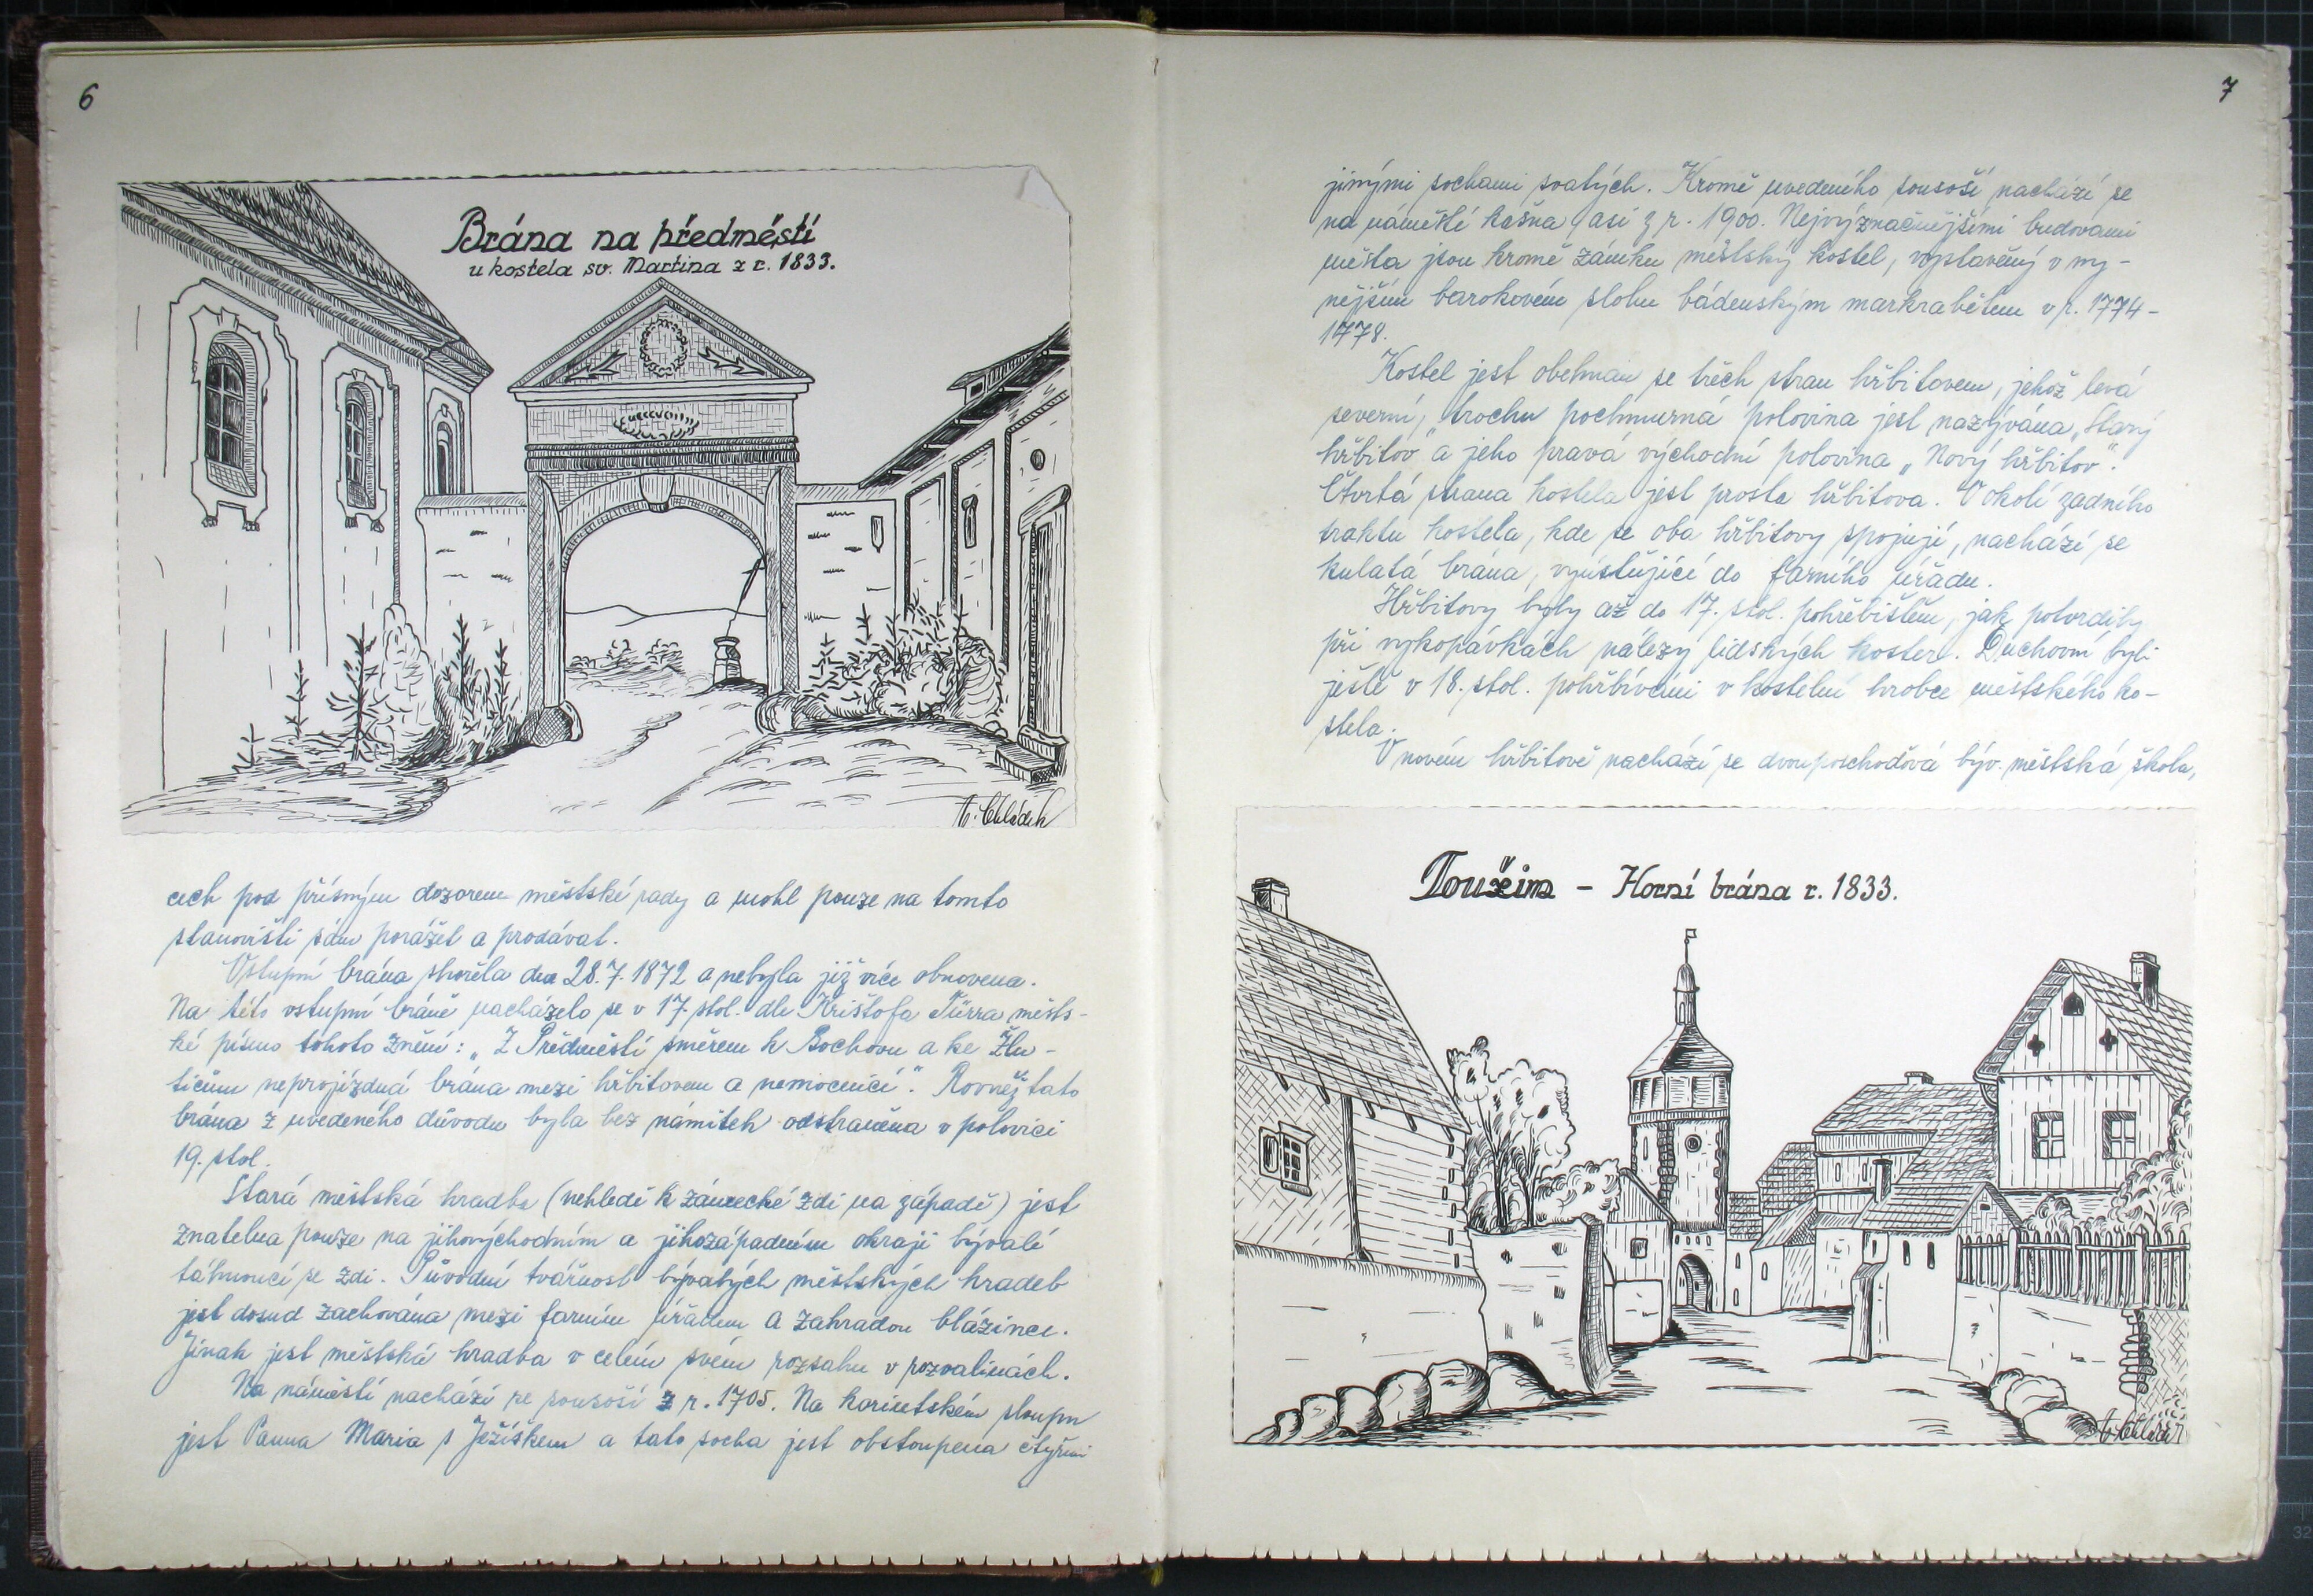 6
Brána na předměstí
u kostela sv. Martina z r. 1833.
A. Chládek
cech pod přísným dozorem městské rady a mohl pouze na tomto
stanovišti sám porážet a prodávat.
Vstupní brána shořela dna 28.7.1872 a nebyla již více obnovena.
Na této vstupní bráně nacházelo se v 17. stol. dle Krištofa Türra měst-
ké písmo tohoto znění: „Z Předměstí směrem k Bochovu a ke Žlu-
ticům neprojízdná brána mezi hřbitovem a nemocnicí". Rovněž tato
brána z uvedeného důvodu byla bez námitek odstraněna v polovici
19. stol.
Stará městská hradba (nehledě k zámecké zdi na západě) jest
znatelna pouze na jihovýchodním a jihozápadním okraji bývalé
táhnoucí se zdi. Původní tvářnost bývalých městských hradeb
jest dosud zachována mezi farním úřadem a zahradou blázince.
Jinak jest městská hradba v celém svém rozsahu v rozvalinách.
Na náměstí nachází se sousoší z r. 1705. Na korintském sloupu
jest Panna Maria s Ježíškem a tato socha jest obstoupena čtyřmi
7
jinými sochami svatých. Kromě uvedeného sousoší nachází se
na náměstí kašna asi z r. 1900. Nejvýznačnějšími budovami
města jsou kromě zámku městský kostel, vystavěný v ny-
nějším barokovém slohu bádenským markrabětem v r. 1774-
1778.
Kostel jest obehnán se třech stran hřbitovem, jehož levá
severní, trochu pochmurná polovina jest nazývána „Starý
hřbitov" a jeho pravá východní polovina „Nový hřbitov".
Čtvrtá strana kostela jest prosta hřbitova. V okolí zadního
traktu kostela, kde se oba hřbitovy spojují, nachází se
kulatá brána, vyúsťující do farního úřadu.
Hřbitovy byly až do 17. stol. pohřebištěm, jak potvrdily
při vykopávkách nálezy lidských koster. Duchovní byli
ještě v 18. stol. pohřbíváni v kostelní hrobce městského ko-
stela.
V novém hřbitově nachází se dvouposchoďová býv. městská škola,
Toužim - Horní brána r. 1833.
A. Chládek